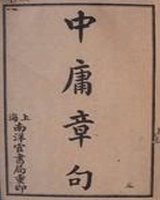 中庸章句
上海
南洋官書局重印